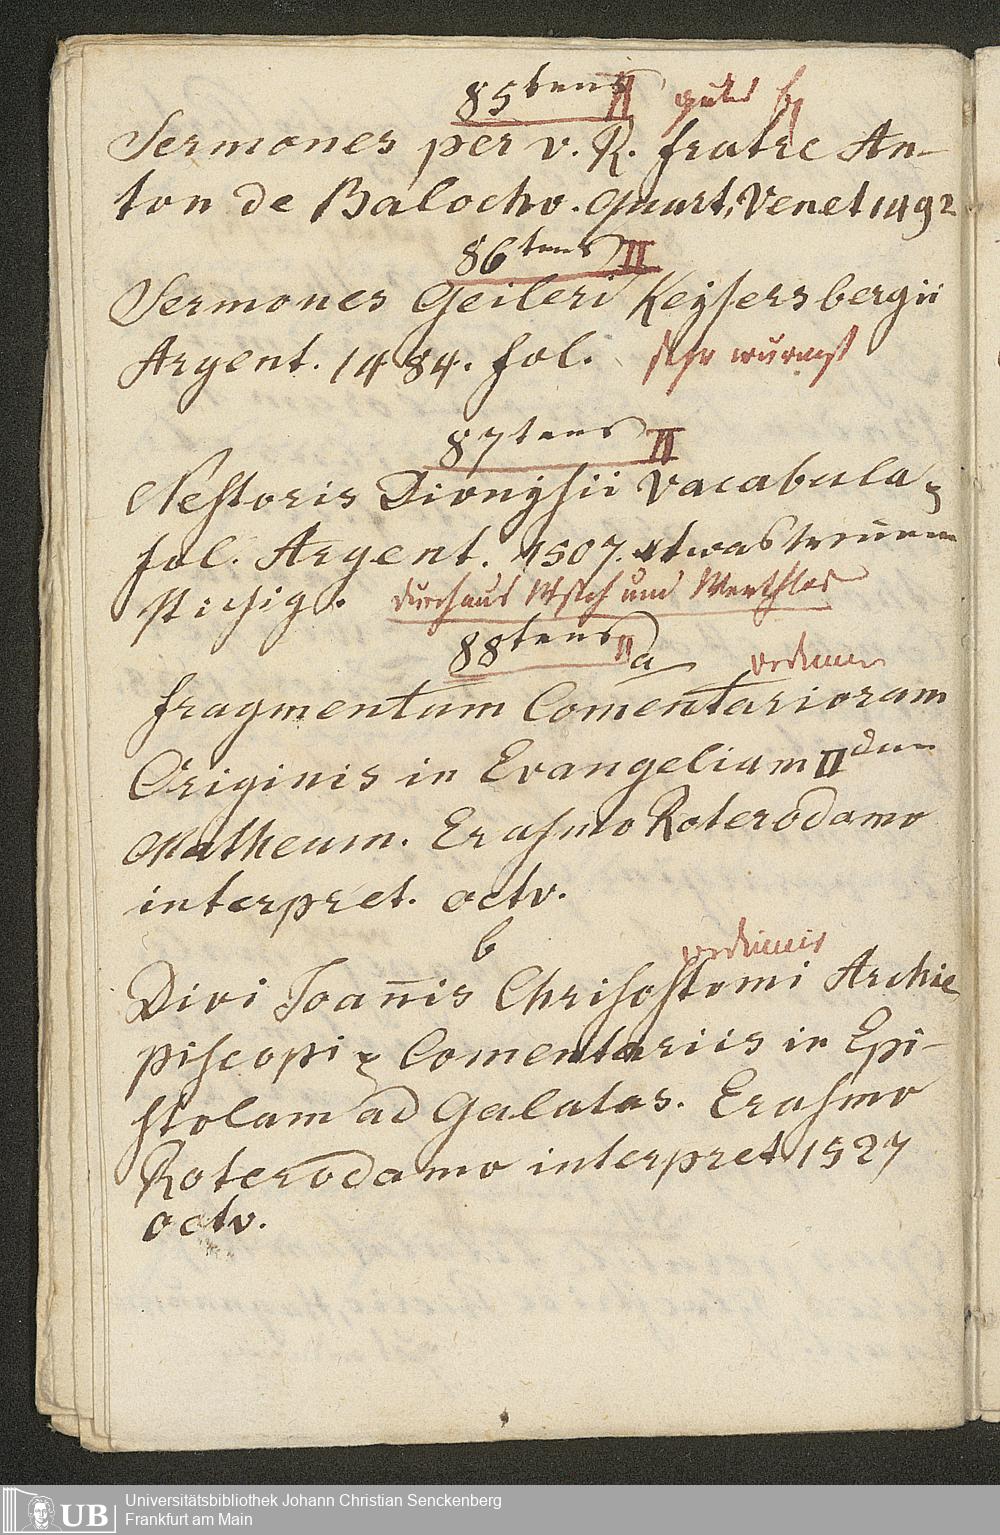 85tens II gutes
Sermones per v. R. fratre An-
ton de Balocho. Quart, Venet 1492
86tens II
Sermones Geileri Keysersbergii
Argent. 1484. fol. sehr
87tens II
Nestoris Dionysii Vacabula,
fol. Argent. 1507. etwas
stichig. durchaus und Werthlos
88tens II
a
fragmentum Comentarioram
Originis in Evangeliam IIdum
Matheum. Erasmo Roterodamo
interpret. octv.
b
Divi Joan̄is Chrisostomi Archie
piscopi Comentariis in Epi-
stolam ad Galatas. Erasmo
Roterodamo interpret 1527
octv.
UB Universitätsbibliothek Johann Christian Senckenberg
Frankfurt am Main